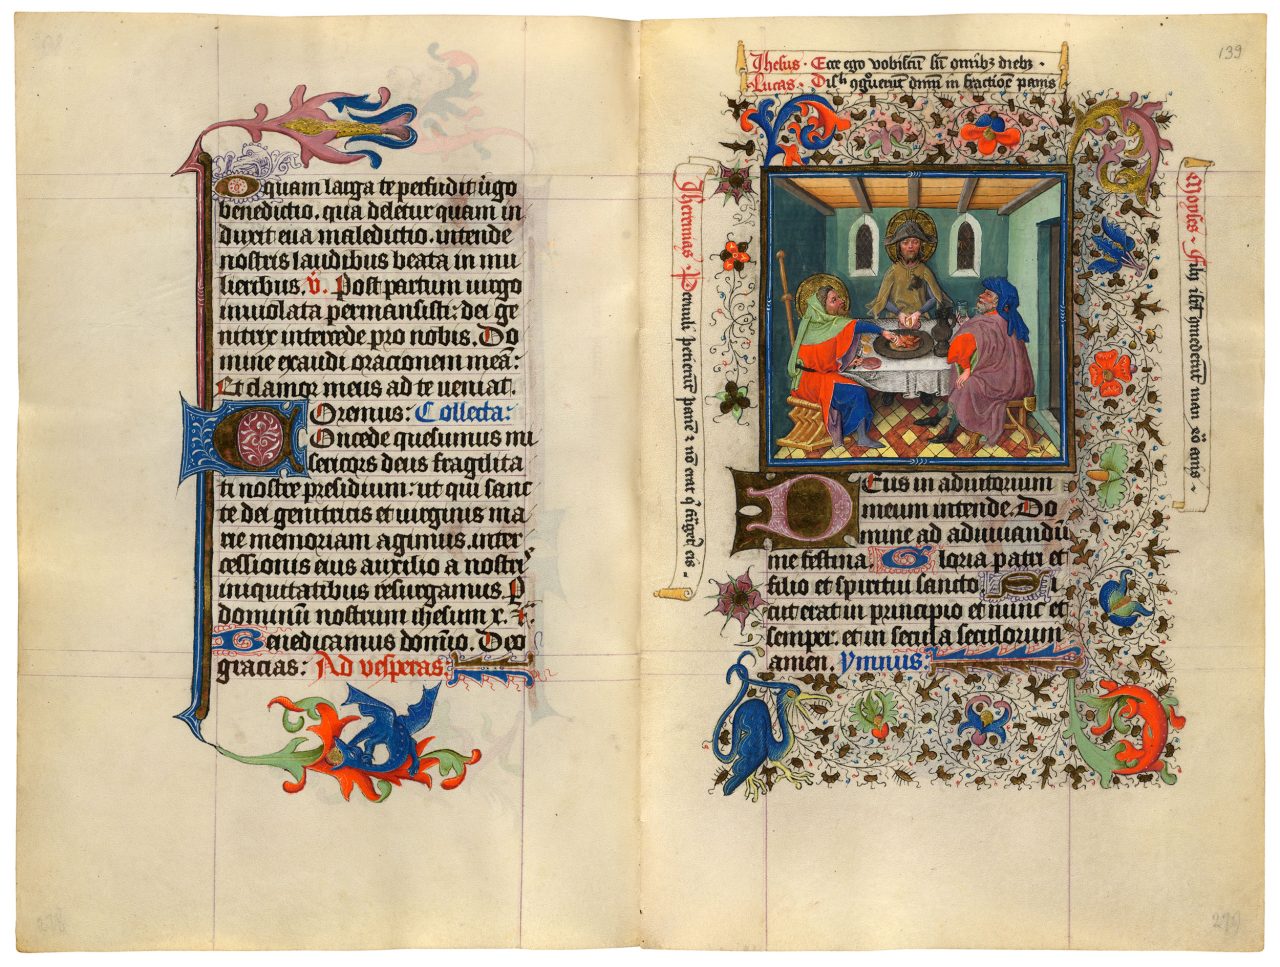 O quam larga te perfudit virgo
benedictio. qua deletur quam in
duxit eua maledictio. intende
nostris laudibus beata in mu
lieribus. v̄. Post partum uirgo
inuiolata permansisti: dei ge
nitrix intercede pro nobis. Do
mine exaudi oracionem meā:
Et clamor meus ad te veniat.
Oremus: Collecta:
Concede quesumus mi
sericors deus fragilita
ti nostre presidium: ut qui sanc
te dei genitricis et uirginis ma
rie memoriam agimus. inter
cessionis eius auxilio a nostris
iniquitatibus resurgamus. P
dominū nostrum ihesum x.
Benedicamus domīno. Deo
gracias: Ad vesperas:
139
Jhesus. Ecce ego vobiscū sū omībz diebz.
Lucas. in fractiōe panis
Jheremias. Paruuli petierūt panē et nō erat qͥ frāgeret eis
Moyses. Filij isrl
Deus in adiutorium
meum intende. Do
mine ad adiuuandū
me festina. Gloria patri et
filio et spiritui sancto. Si
cut erat in principio et nunc et
semper. et in secula seculorum
amen. ymnus: